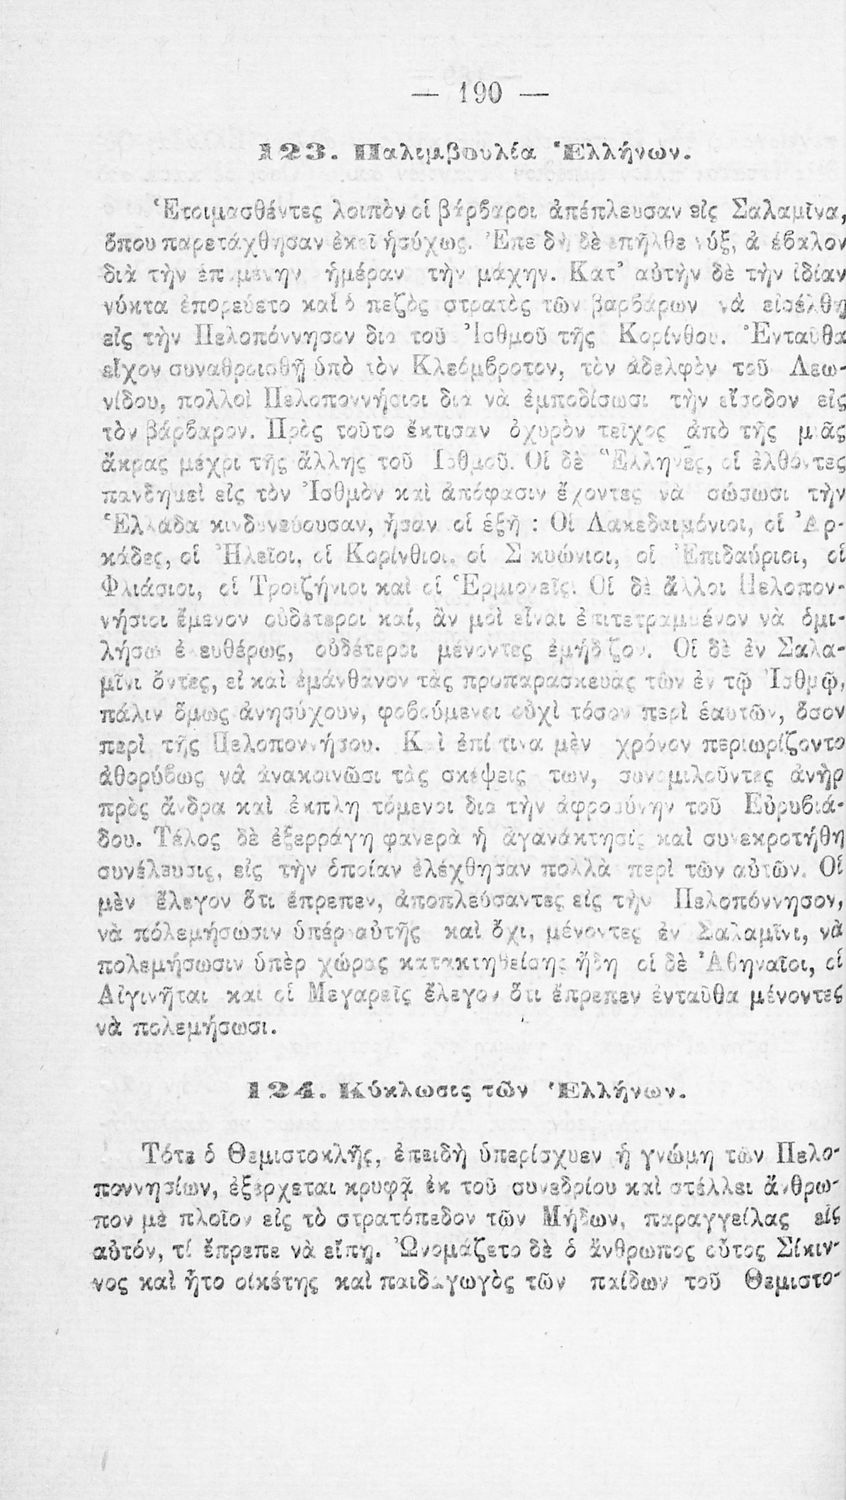 — 190 —
123. Παλιμβουλία Ἑλλήνων.
Ἑτοιμασθέντες λοιπὸν οἱ βάρβαροι ἀπέπλευσαν εἰς Σαλαμῖνα,
ὅπου παρετάχθησαν ἐκεῖ ἡσύχως. Ἐπειδὴ δὲ ἐπῆλθε νύξ, ἀνέβαλον
διὰ τὴν ἐπομένην ἡμέραν τὴν μάχην. Κατ’ αὐτὴν δὲ τὴν ἰδίαν
νύκτα ἐπορεύετο καὶ ὁ πεζὸς στρατὸς τῶν βαρβάρων νὰ εἰσέλθῃ
εἰς τὴν Πελοπόννησον διὰ τοῦ Ἰσθμοῦ τῆς Κορίνθου. Ἐνταῦθα
εἶχον συναθροισθῆ ὑπὸ τὸν Κλεόμβροτον, τὸν ἀδελφὸν τοῦ Λεω-
νίδου, πολλοὶ Πελοποννήσιοι διὰ νὰ ἐμποδίσωσι τὴν εἴσοδον εἰς
τὸν βάρβαρον. Πρὸς τοῦτο ἔκτισαν ὀχυρὸν τεῖχος ἀπὸ τῆς μιᾶς
ἄκρας μέχρι τῆς ἄλλης τοῦ Ἰσθμοῦ. Οἱ δὲ Ἕλληνες, οἱ ἐλθόντες
πανδημεὶ εἰς τὸν Ἰσθμὸν καὶ ἀπόφασιν ἔχοντες νὰ σώσωσι τὴν
Ἑλλάδα κινδυνεύουσαν, ἦσαν οἱ ἑξῆς : Οἱ Λακεδαιμόνιοι, οἱ Ἀρ-
κάδες, οἱ Ἠλεῖοι, οἱ Κορίνθιοι, οἱ Σικυώνιοι, οἱ Ἐπιδαύριοι, οἱ
Φλιάσιοι, οἱ Τροιζήνιοι καὶ οἱ Ἑρμιονεῖς. Οἱ δὲ ἄλλοι Πελοπον-
νήσιοι ἔμενον οὐδέτεροι καί, ἂν μοὶ εἶναι ἐπιτετραμμένον νὰ ὁμι-
λήσω ἐλευθέρως, οὐδέτεροι μένοντες ἐμήδιζον. Οἱ δὲ ἐν Σαλα-
μῖνι ὄντες, εἰ καὶ ἐμάνθανον τὰς προπαρασκευὰς τῶν ἐν τῷ Ἰσθμῷ,
πάλιν ὅμως ἀνησύχουν, φοβούμενοι οὐχὶ τόσον περὶ ἑαυτῶν, ὅσον
περὶ τῆς Πελοποννήσου. Καὶ ἐπί τινα μὲν χρόνον περιωρίζοντο
ἀθορύβως νὰ ἀνακοινῶσι τὰς σκέψεις των, συνομιλοῦντες ἀνὴρ
πρὸς ἄνδρα καὶ ἐκπληττόμενοι διὰ τὴν ἀφροσύνην τοῦ Εὐρυβιά-
δου. Τέλος δὲ ἐξερράγη φανερὰ ἡ ἀγανάκτησις καὶ συνεκροτήθη
συνέλευσις, εἰς τὴν ὁποίαν ἐλέχθησαν πολλὰ περὶ τῶν αὐτῶν. Οἱ
μὲν ἔλεγον ὅτι ἔπρεπεν, ἀποπλεύσαντες εἰς τὴν Πελοπόννησον,
νὰ πολεμήσωσιν ὑπὲρ αὐτῆς καὶ ὄχι, μένοντες ἐν Σαλαμῖνι, νὰ
πολεμήσωσιν ὑπὲρ χώρας κατακτηθείσης ἤδη οἱ δὲ Ἀθηναῖοι, οἱ
Αἰγινῆται καὶ οἱ Μεγαρεῖς ἔλεγον ὅτι ἔπρεπεν ἐνταῦθα μένοντες
νὰ πολεμήσωσι.
124. Κύκλωσις τῶν Ἑλλήνων.
Τότε ὁ Θεμιστοκλῆς, ἐπειδὴ ὑπερίσχυεν ἡ γνώμη τῶν Πελο-
ποννησίων, ἐξέρχεται κρυφᾷ ἐκ τοῦ συνεδρίου καὶ στέλλει ἄνθρω-
πον μὲ πλοῖον εἰς τὸ στρατόπεδον τῶν Μήδων, παραγγείλας εἰς
αὐτόν, τί ἔπρεπε νὰ εἴπῃ. Ὠνομάζετο δὲ ὁ ἄνθρωπος οὗτος Σίκιν-
νος καὶ ἦτο οἰκέτης καὶ παιδαγωγὸς τῶν παίδων τοῦ Θεμιστο-